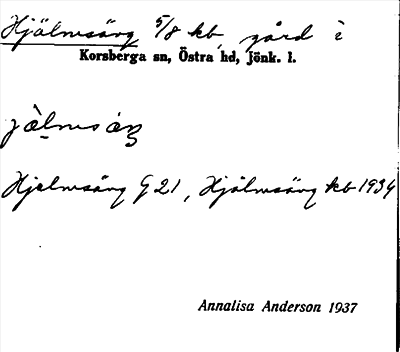 Hjälmsäng 5/8 kb, gård i
Korsberga sn, Östra hd, Jönk. l.
Hjelmsäng G 21, Hjälmsäng kb 1934
Annalisa Anderson 1937